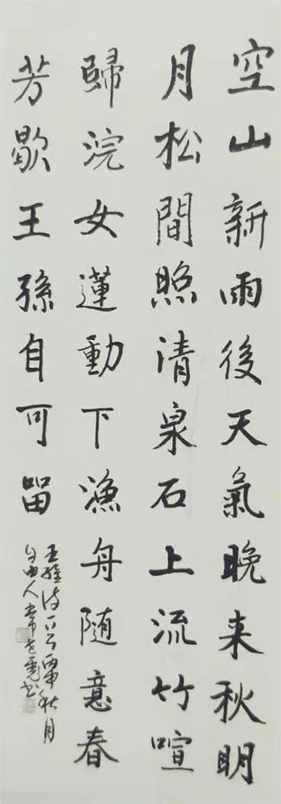 空山新雨後天氣晚来秋明
月松間照清泉石上流竹喧
歸浣女蓮動下漁舟随意春
芳歇王孫自可留
王維詩一首 秋月
自由人 書